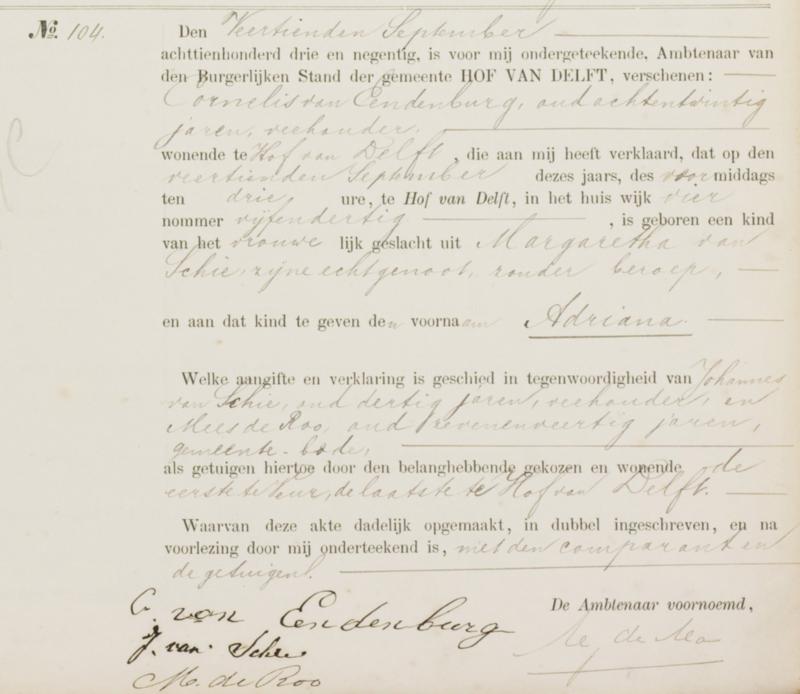 No. 104.
Den Veertienden September
achttienhonderd drie en negentig, is voor mij ondergeteekende, Ambtenaar van
den Burgerlijken Stand der gemeente HOF VAN DELFT, verschenen:
Cornelis van Eendenburg, oud achtentwintig
jaren, veehouder,
wonende te Hof van Delft, die aan mij heeft verklaard, dat op den
veertienden September dezes jaars, des voormiddags
ten drie ure, te Hof van Delft, in het huis wijk vier
nommer vijfendertig, is geboren een kind
van het vrouwelijk geslacht uit Margaretha van
Schie, zijne echtgenoot, zonder beroep,
en aan dat kind te geven den voornaam Adriana.
Welke aangifte en verklaring is geschied in tegenwoordigheid van Johannes
van Schie, oud dertig jaren, veehouder, en
Mees de Roo, oud zevenenveertig jaren,
gemeente-bode,
als getuigen hiertoe door den belanghebbende gekozen en wonende de
eerste te, de laatste te Hof van Delft.
Waarvan deze akte dadelijk opgemaakt, in dubbel ingeschreven, en na
voorlezing door mij onderteekend is, met den comparant en
de getuigen.
De Ambtenaar voornoemd,
C. van Eendenburg
J. van Schie
M. de Roo